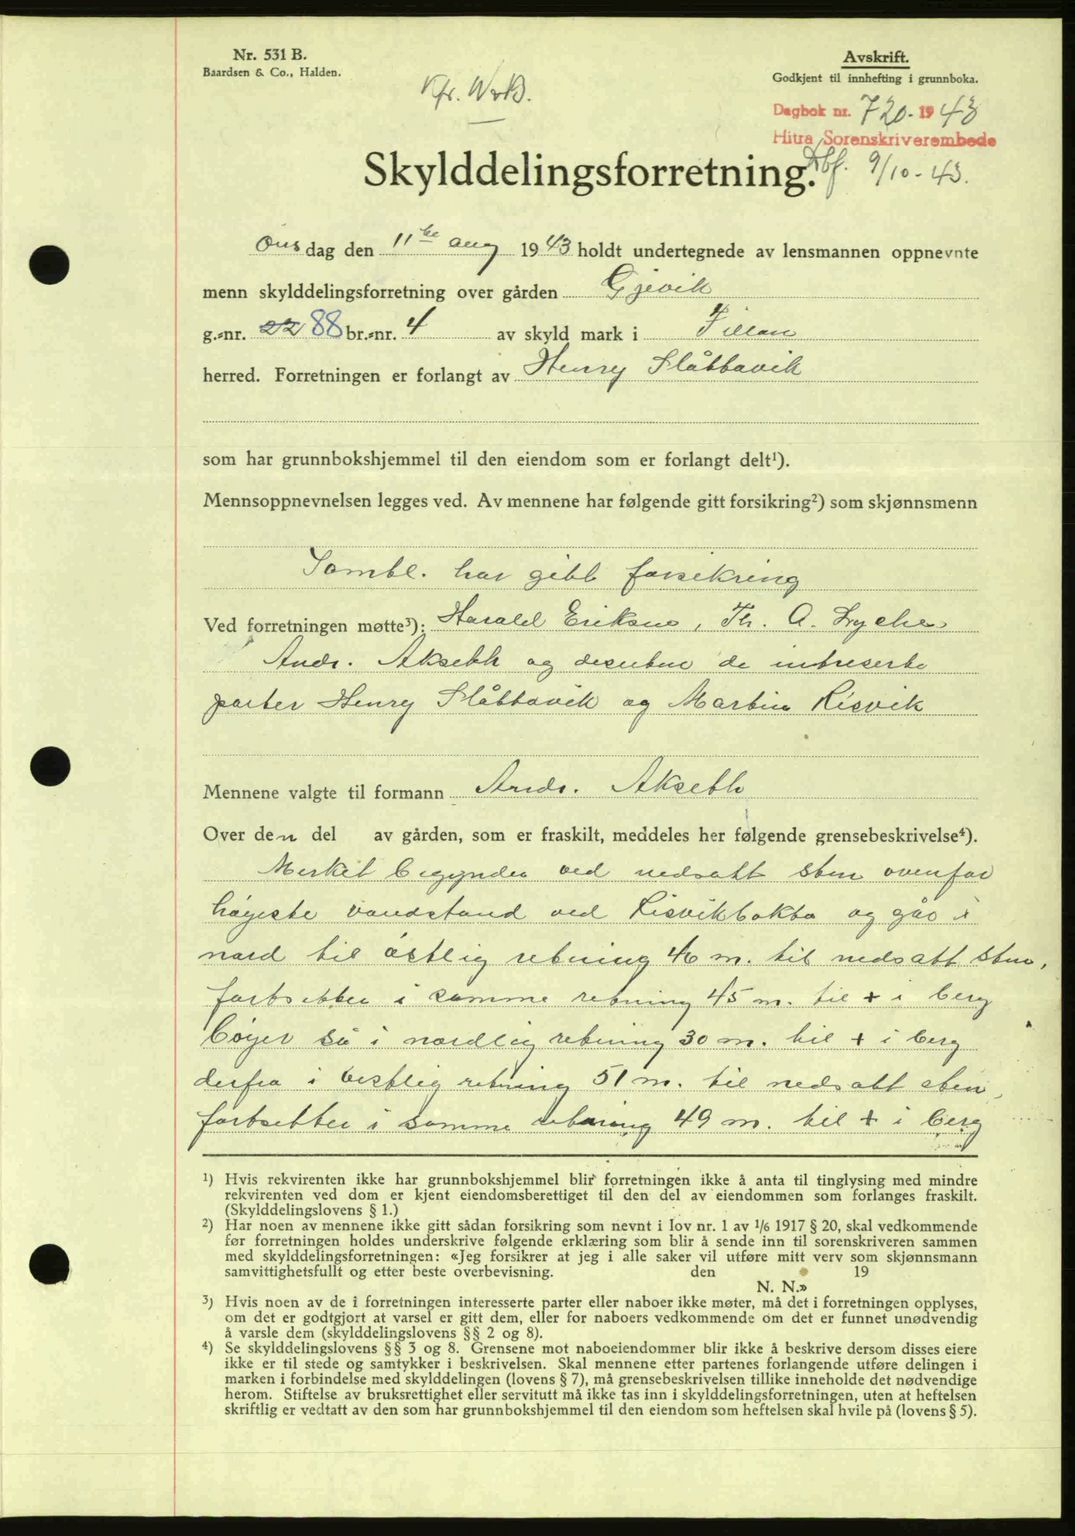 Nr. 531 B.
Baardsen & Co., Halden.
Avskrift.
Godkjent til innhefting i grunnboka.
Dagbok nr. 720 - 1943
Hitra Sorenskriverembede
9/10-43.
Skylddelingsforretning.
Onsdag den 11te aug 1943 holdt undertegnede av lensmannen oppnevnte
menn skylddelingsforretning over gården Gjevik
g.-nr. 22 88 br.-nr. 4 av skyld mark i Fillan
herred. Forretningen er forlangt av Henry Slåttavik
som har grunnbokshjemmel til den eiendom som er forlangt delt¹).
Mennsoppnevnelsen legges ved. Av mennene har følgende gitt forsikring²) som skjønnsmenn
Samtl. har gitt forsikring
Ved forretningen møtte³): Harald Eriksen, Th. A. Dyche
Andr. Akseth og desuten de intreserte
parter Henry Slåttavik og Martin Risvik
Mennene valgte til formann Andr. Akseth
Over den del av gården, som er fraskilt, meddeles her følgende grensebeskrivelse⁴).
Merket begynder ved nedsatt sten ovenfor
høyeste vandstand ved Risvikbukta og går i
nord til østlig retning 46 m. til nedsatt sten,
fortsetter i samme retning 45 m. til + i berg
bøyer så i nordlig retning 30 m. til + i berg
derfra i vestlig retning 51 m. til nedsatt sten,
fortsetter i samme retning 49 m. til + i berg
¹) Hvis rekvirenten ikke har grunnbokshjemmel blir forretningen ikke å anta til tinglysing med mindre
rekvirenten ved dom er kjent eiendomsberettiget til den del av eiendommen som forlanges fraskilt.
(Skylddelingslovens § 1.)
²) Har noen av mennene ikke gitt sådan forsikring som nevnt i lov nr. 1 av 1/6 1917 § 20, skal vedkommende
før forretningen holdes underskrive følgende erklæring som blir å sende inn til sorenskriveren sammen
med skylddelingsforretningen: «Jeg forsikrer at jeg i alle saker vil utføre mitt verv som skjønnsmann
samvittighetsfullt og etter beste overbevisning. den 19
N. N.»
³) Hvis noen av de i forretningen interesserte parter eller naboer ikke møter, må det i forretningen opplyses,
om det er godtgjort at varsel er gitt dem, eller for naboers vedkommende om det er funnet unødvendig
å varsle dem (skylddelingslovens §§ 2 og 8).
⁴) Se skylddelingslovens §§ 3 og 8. Grensene mot naboeiendommer blir ikke å beskrive dersom disses eiere
ikke er til stede og samtykker i beskrivelsen. Skal mennene etter partenes forlangende utføre delingen i
marken i forbindelse med skylddelingen (lovens § 7), må grensebeskrivelsen tillike inneholde det nødvendige
herom. Stiftelse av bruksrettighet eller servitutt må ikke tas inn i skylddelingsforretningen, uten at heftelsen
skriftlig er vedtatt av den som har grunnbokshjemmel til den eiendom som heftelsen skal hvile på (lovens § 5).